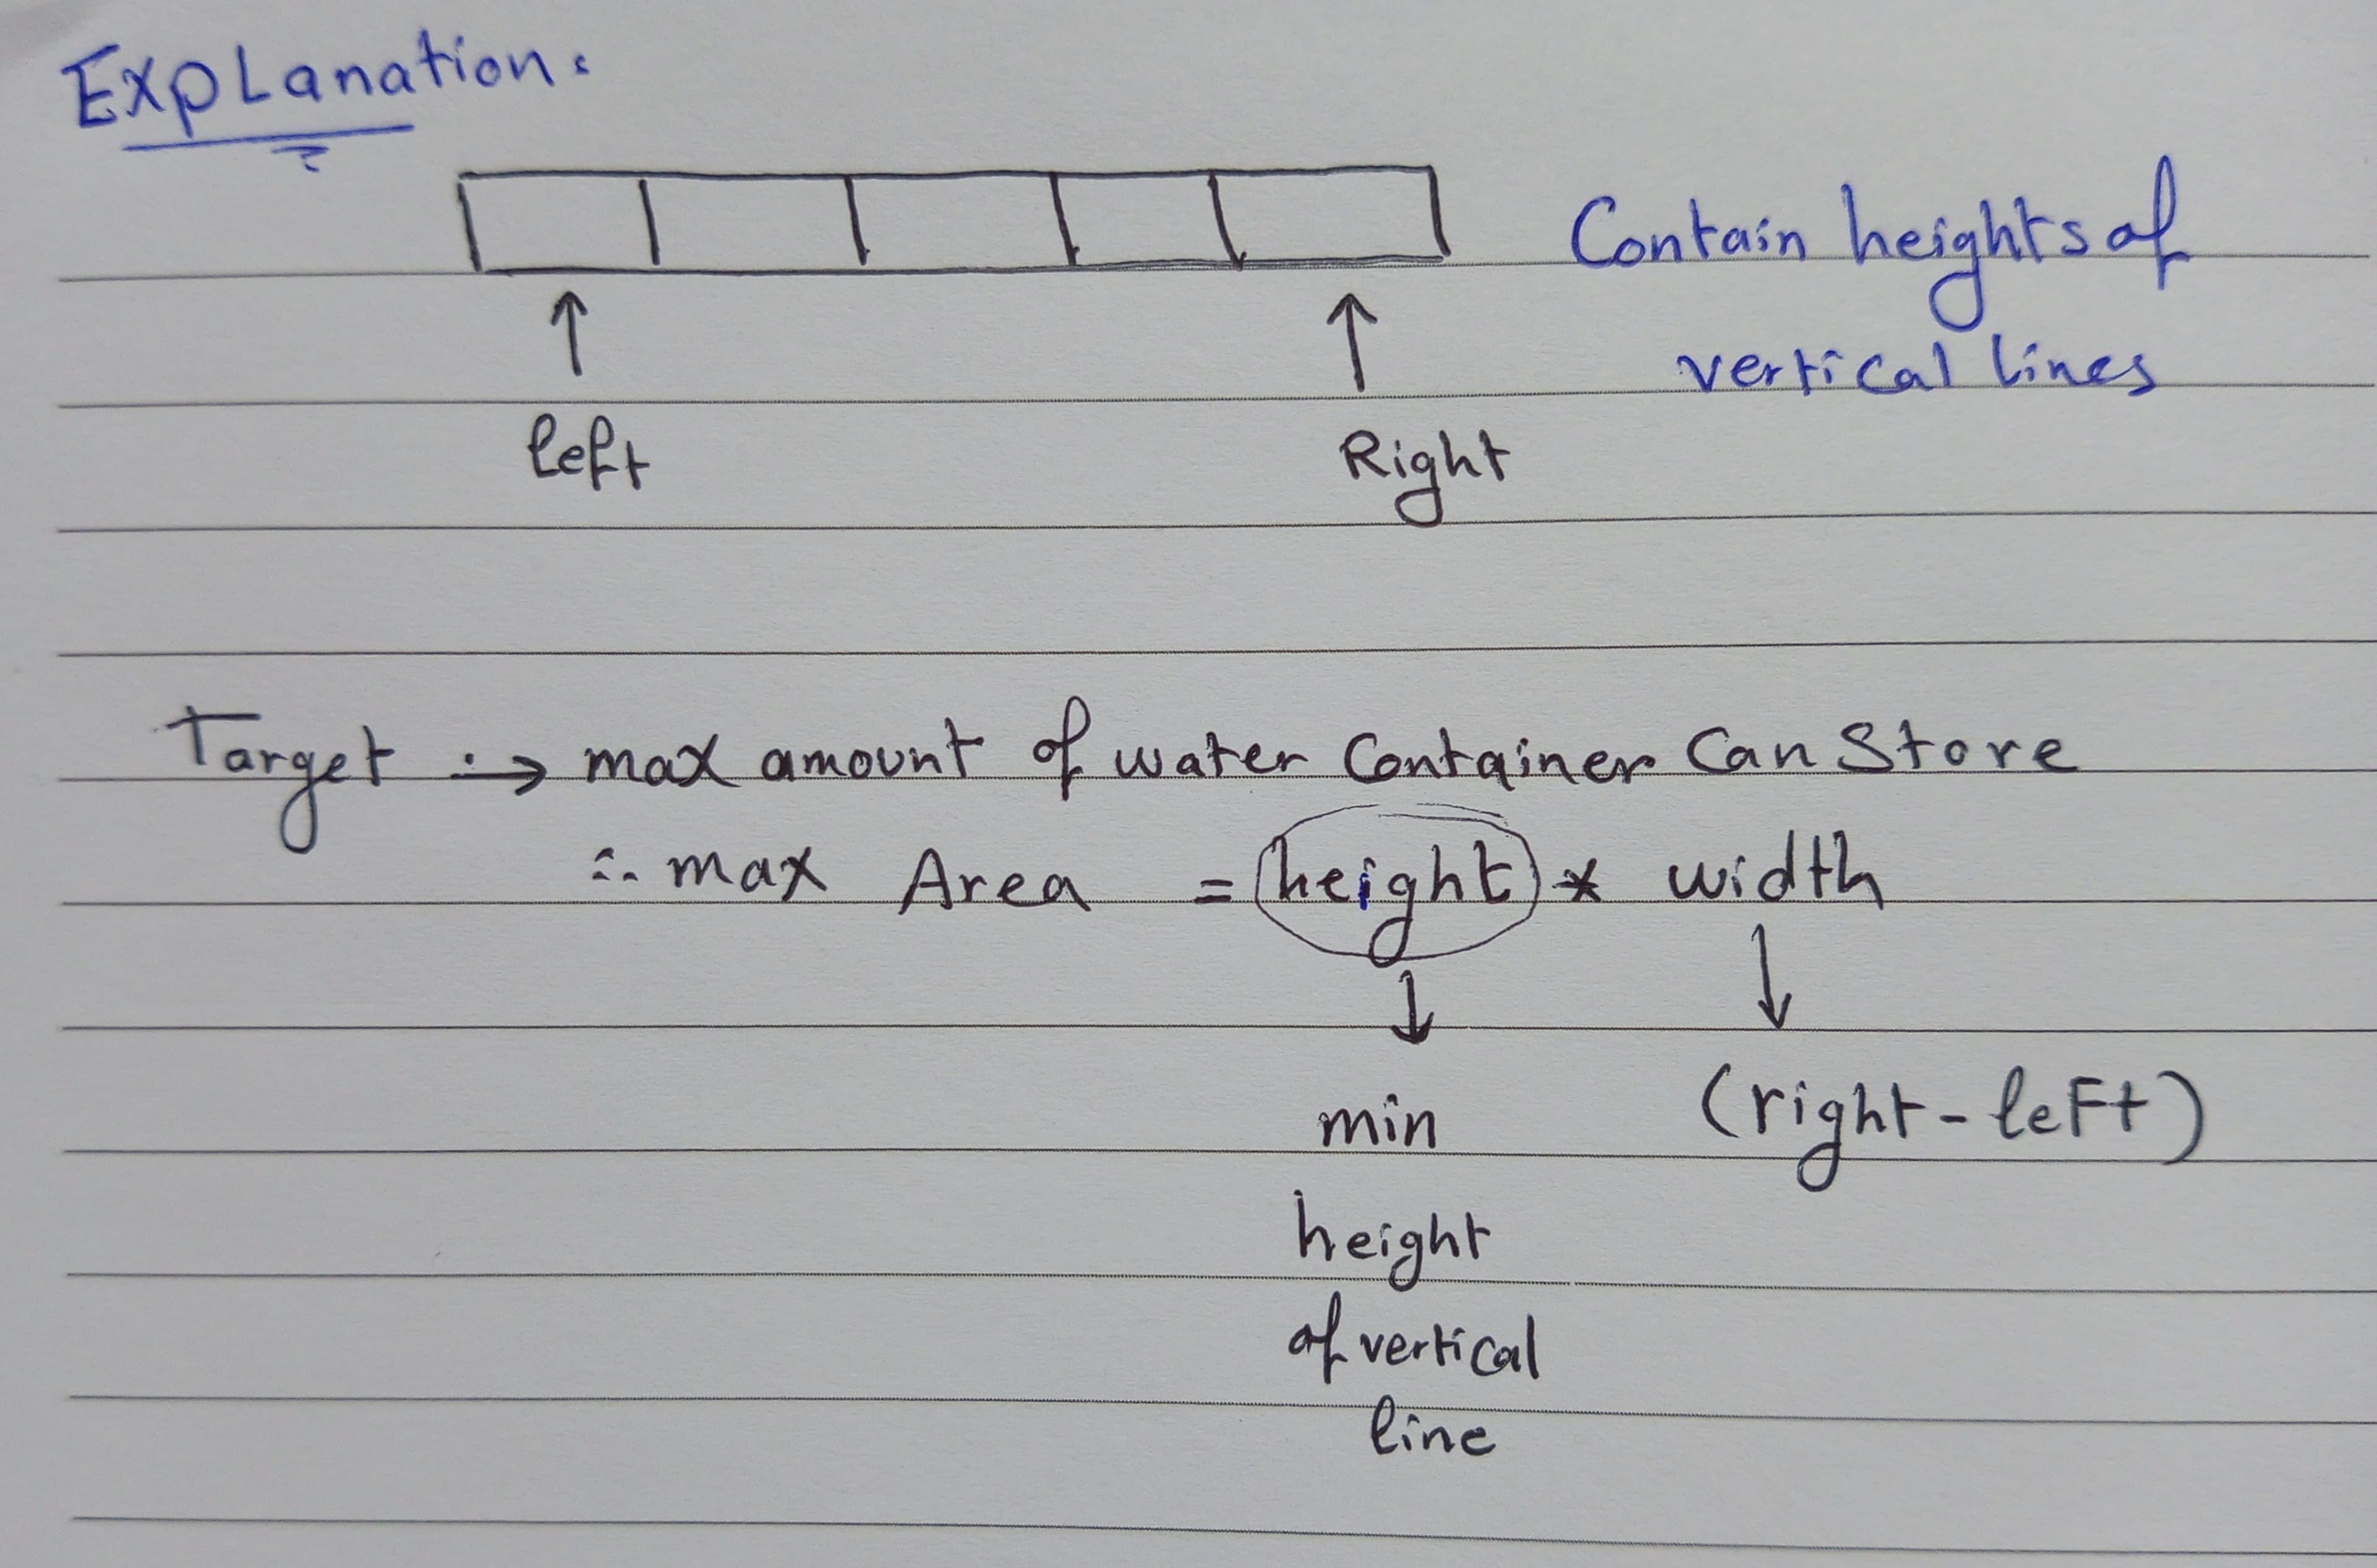 Explanation:
Contain heights of
vertical lines
left Right
Target :→ max amount of water Container Can Store
∴ max Area = height * width
↓ ↓
min (right - left)
height
of vertical
line